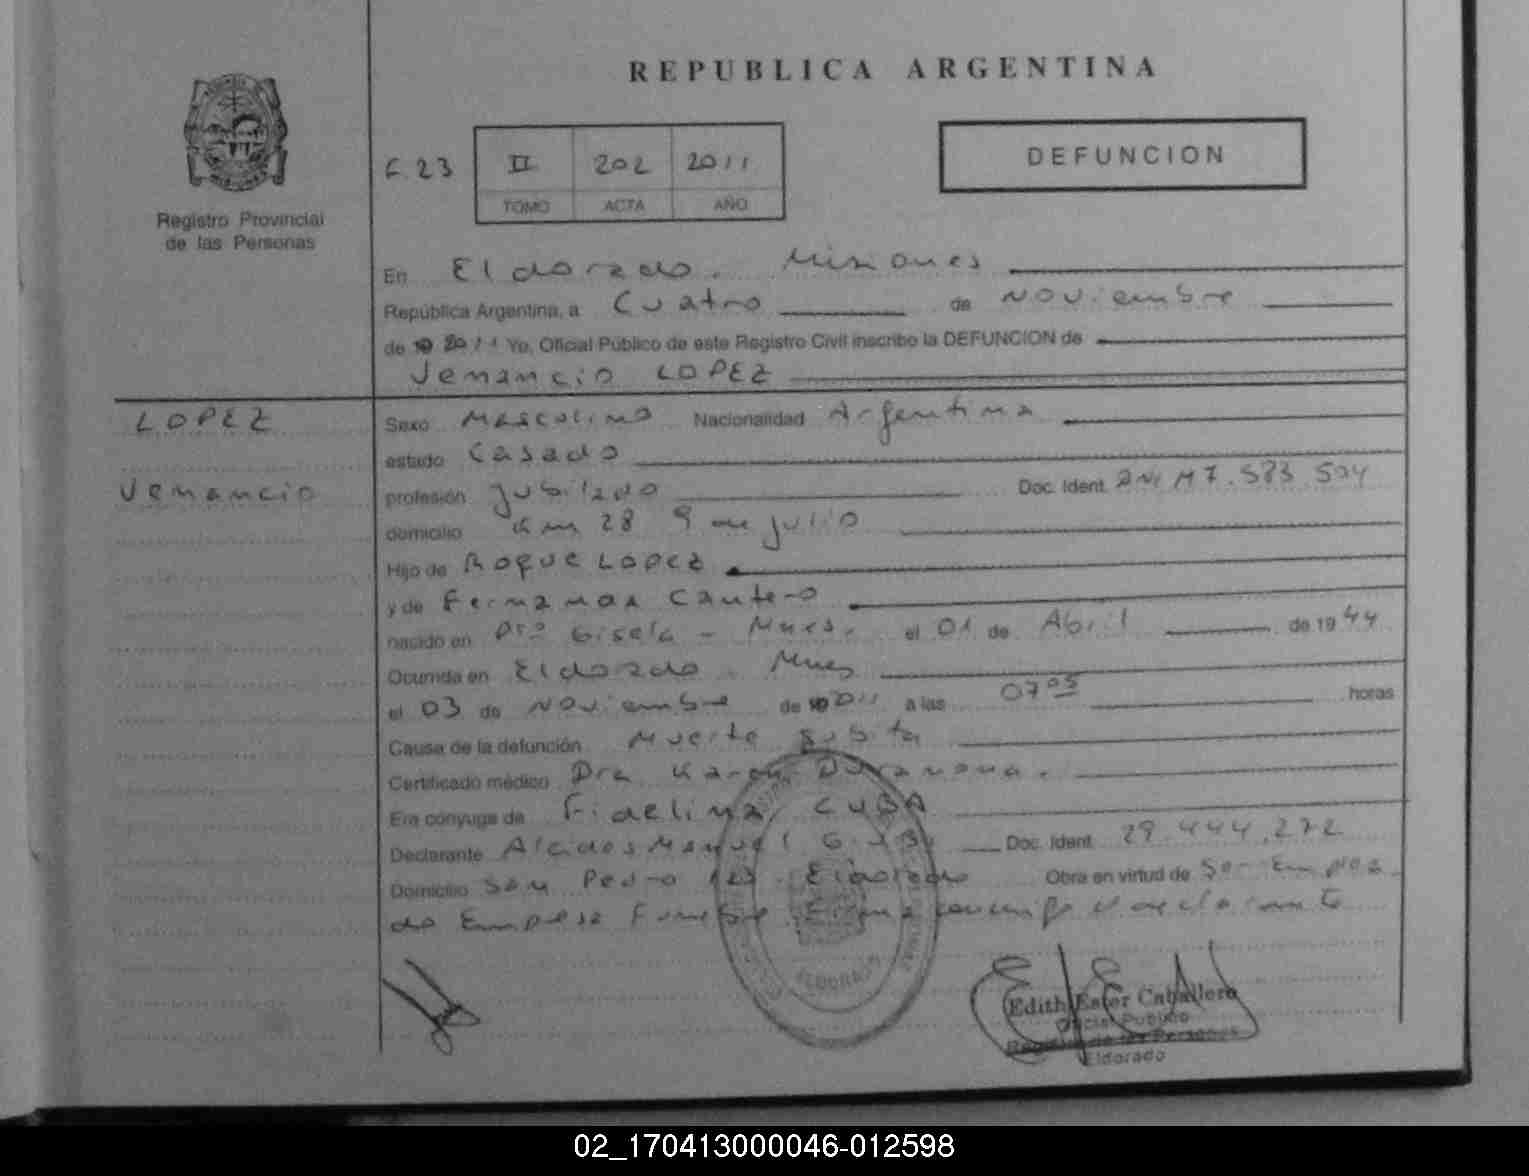 REPUBLICA ARGENTINA
DEFUNCION
F. 23 II 202 2011
TOMO ACTA AÑO
Registro Provincial
de las Personas
En Eldorado. Misiones
República Argentina, a Cuatro de Noviembre
de 2011 Yo, Oficial Público de este Registro Civil inscribo la DEFUNCION de
Venancio LOPEZ
LOPEZ
Venancio
Sexo Masculino Nacionalidad Argentina
estado Casado
profesión jubilado Doc. Ident. DNI M7.583.504
domicilio Km 28 9 de julio
Hijo de Roque LOPEZ
y de Cantero
nacido en Pto Gisela - Mnes. el 01 de Abril de 1944
Ocurrida en Eldorado. Mnes
el 03 de Noviembre de 2011 a las 07 05 horas
Causa de la defunción Muerte Subita
Certificado médico Dra Karen
Era cónyuge de Fidelina CUBA
Declarante Alcides Manuel Doc. Ident. 29.444.272
Domicilio San Pedro Eldorado Obra en virtud de Ser Emplea
do Empresa Funebre. Firma conmigo el declarante
ELDORADO
Edith Ester Caballero
Oficial Público
Registro de las Personas
Eldorado
02_170413000046-012598